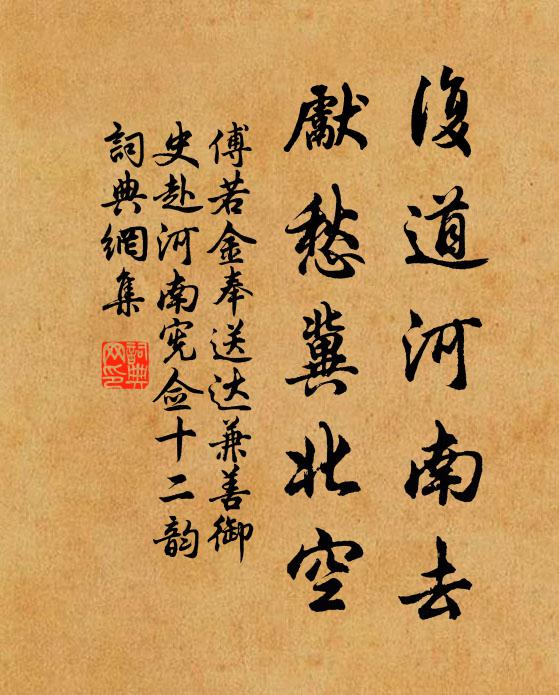 復道河南去
獻愁冀北空
傅若金奉送达兼善御
史赴河南宪佥十二韵
詞典網集
詞典
网印